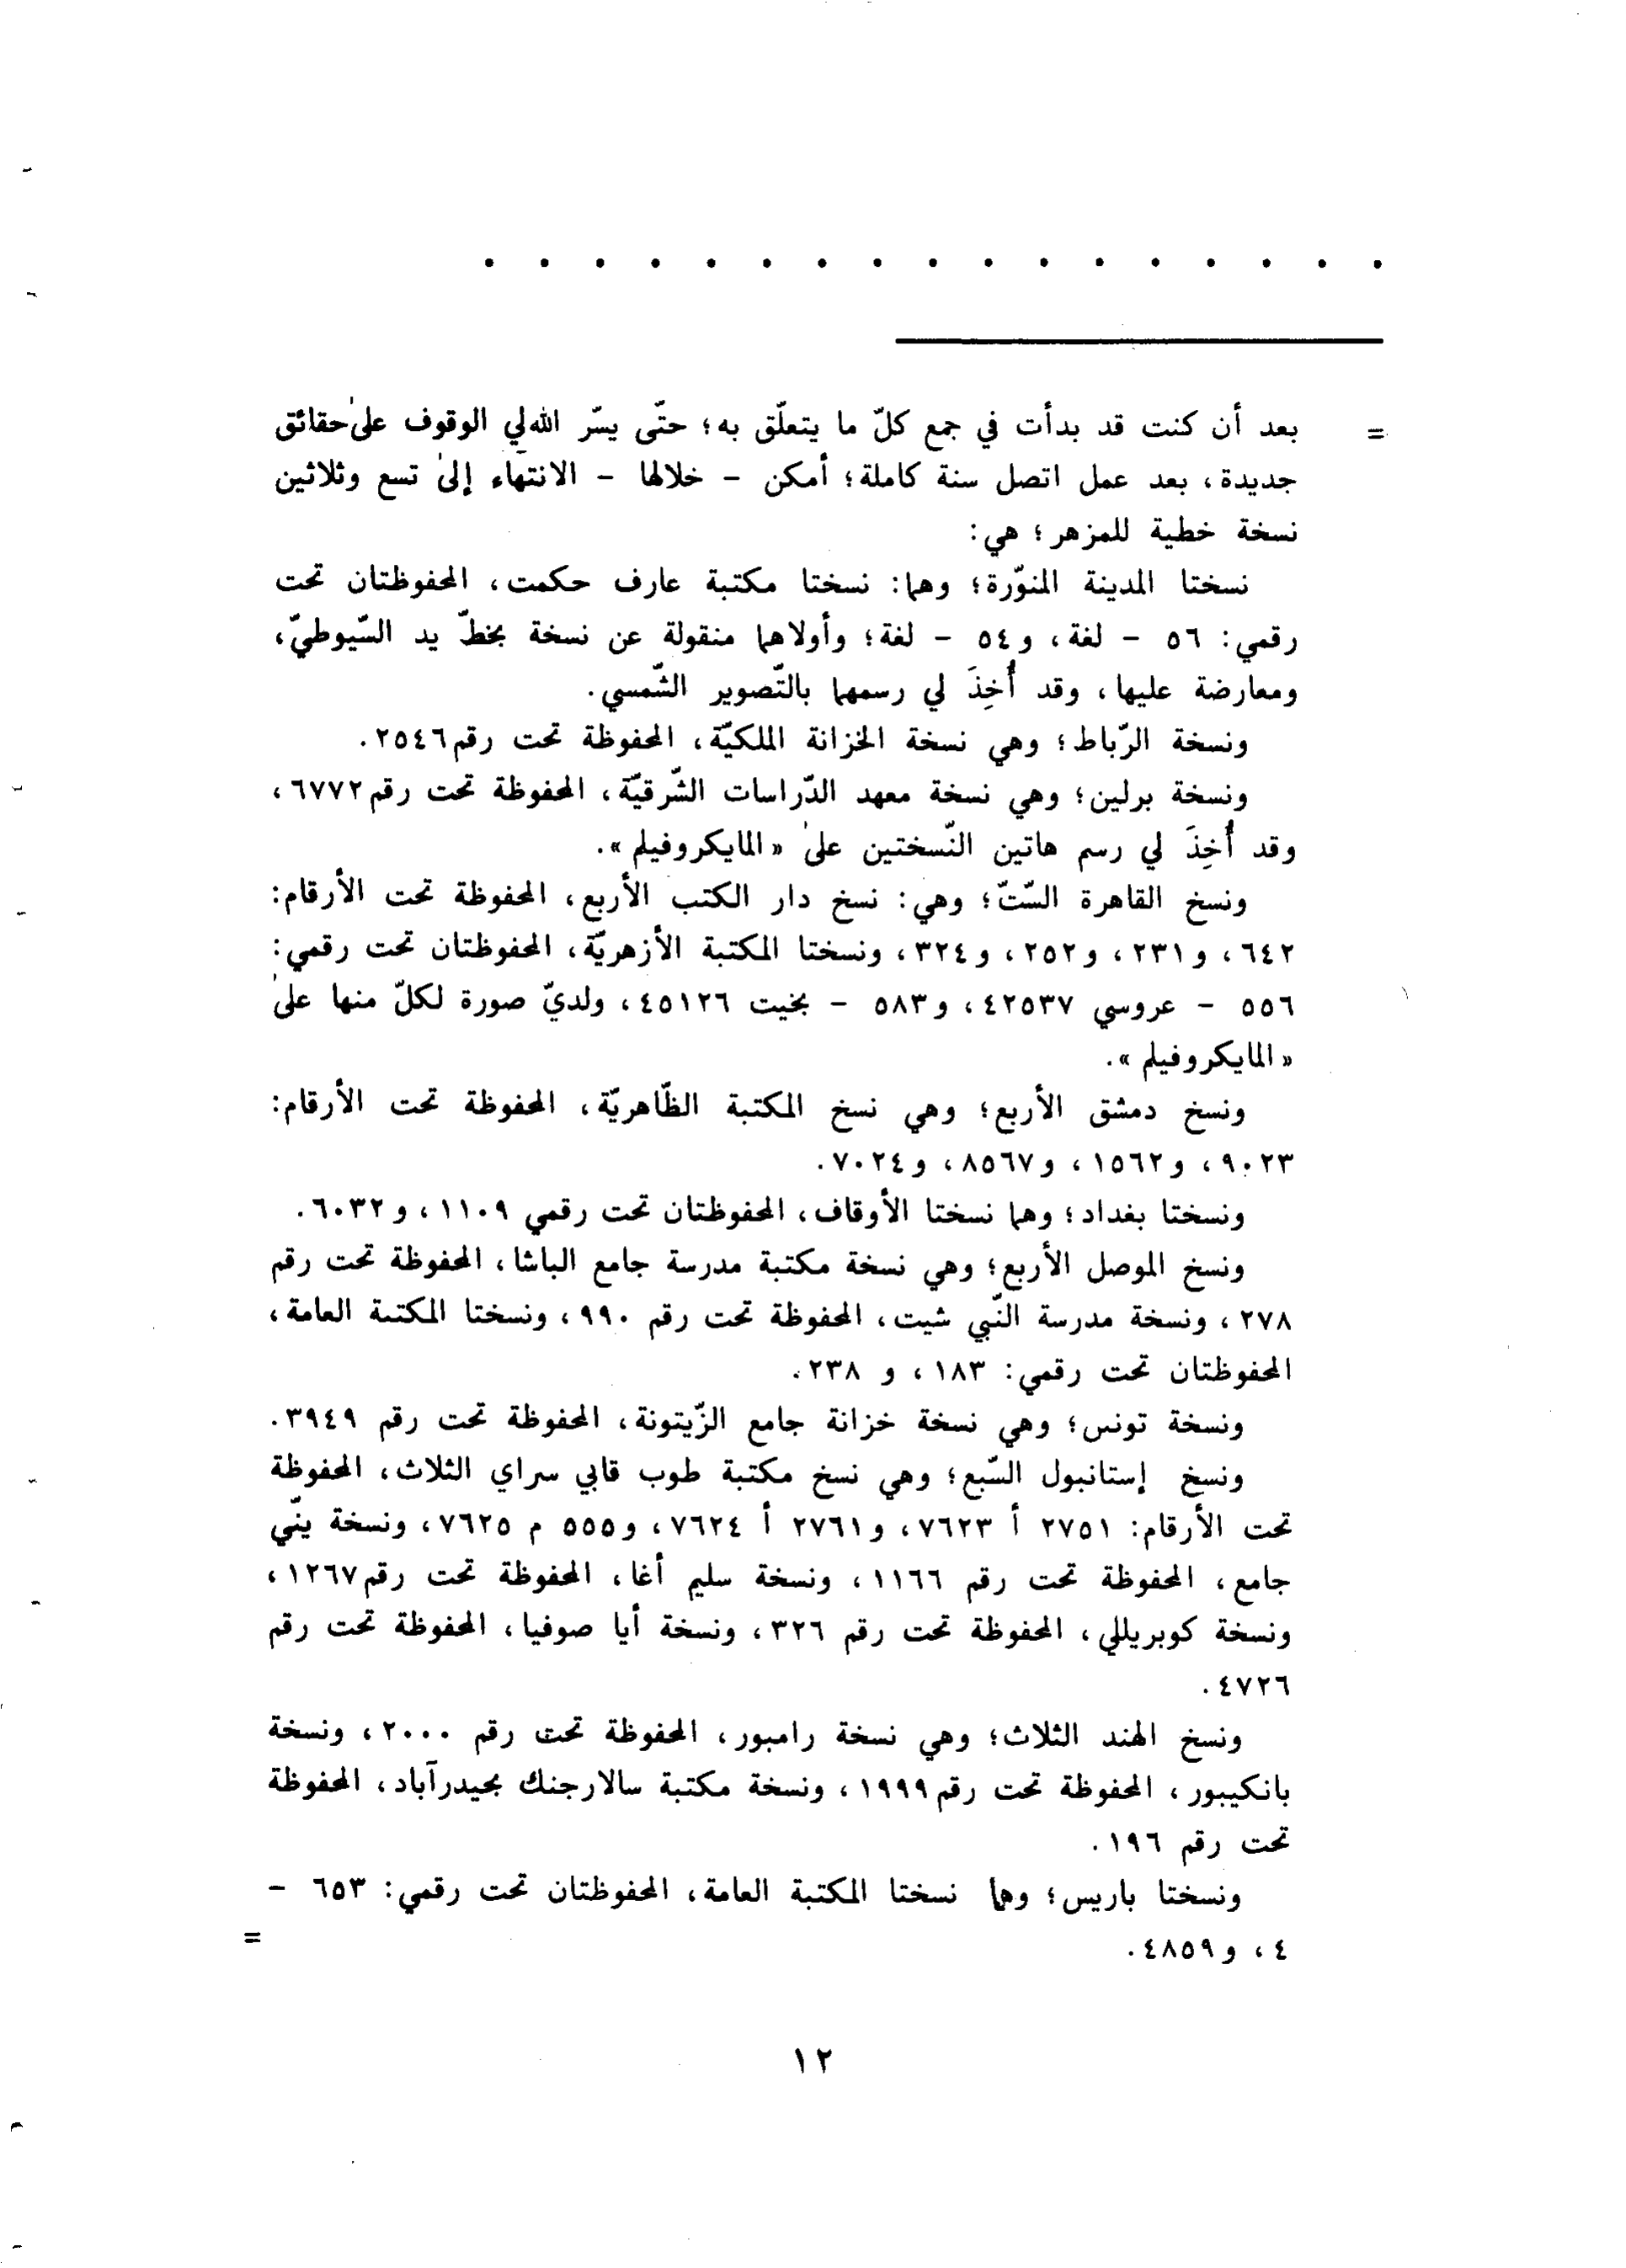 . . . . . . . . . . . . . . . . .
= بعد أن كنت قد بدأت في جمع كلّ ما يتعلّق به؛ حتّى يسّر الله لي الوقوف على حقائق
جديدة، بعد عمل اتصل سنة كاملة؛ أمكن - خلالها - الانتهاء إلى تسع وثلاثين
نسخة خطية للمزهر؛ هي:
نسختا المدينة المنوّرة؛ وهما: نسختا مكتبة عارف حكمت، المحفوظتان تحت
رقمي: ٥٦ - لغة، و٥٤ - لغة؛ وأولاهما منقولة عن نسخة بخطّ يد السّيوطيّ،
ومعارضة عليها، وقد أُخِذَ لي رسمهما بالتّصوير الشّمسي.
ونسخة الرّباط؛ وهي نسخة الخزانة الملكيّة، المحفوظة تحت رقم ٢٥٤٦.
ونسخة برلين؛ وهي نسخة معهد الدّراسات الشّرقيّة، المحفوظة تحت رقم ٦٧٧٢،
وقد أُخِذَ لي رسم هاتين النّسختين على «المايكروفيلم».
ونسخ القاهرة السّتّ؛ وهي: نسخ دار الكتب الأربع، المحفوظة تحت الأرقام:
٦٤٢، و٢٣١، و٢٥٢، و٣٢٤، ونسختا المكتبة الأزهريّة، المحفوظتان تحت رقمي:
٥٥٦ - عروسي ٤٢٥٣٧، و٥٨٣ - بخيت ٤٥١٢٦، ولديّ صورة لكلّ منها على
«المايكروفيلم».
ونسخ دمشق الأربع؛ وهي نسخ المكتبة الظّاهريّة، المحفوظة تحت الأرقام:
٩٠٢٣، و١٥٦٢، و٨٥٦٧، و٧٠٢٤.
ونسختا بغداد؛ وهما نسختا الأوقاف، المحفوظتان تحت رقمي ١١٠٩، و٦٠٣٢.
ونسخ الموصل الأربع؛ وهي نسخة مكتبة مدرسة جامع الباشا، المحفوظة تحت رقم
٢٧٨، ونسخة مدرسة النّبي شيت، المحفوظة تحت رقم ٩٩٠، ونسختا المكتبة العامة،
المحفوظتان تحت رقمي: ١٨٣، و ٢٣٨.
ونسخة تونس؛ وهي نسخة خزانة جامع الزّيتونة، المحفوظة تحت رقم ٣٩٤٩.
ونسخ إستانبول السّبع؛ وهي نسخ مكتبة طوب قابي سراي الثلاث، المحفوظة
تحت الأرقام: ٢٧٥١ أ ٧٦٢٣، و٢٧٦١ أ ٧٦٢٤، و٥٥٥ م ٧٦٢٥، ونسخة ينّي
جامع، المحفوظة تحت رقم ١١٦٦، ونسخة سليم أغا، المحفوظة تحت رقم ١٢٦٧،
ونسخة كوبريللي، المحفوظة تحت رقم ٣٢٦، ونسخة أيا صوفيا، المحفوظة تحت رقم
٤٧٢٦.
ونسخ الهند الثلاث؛ وهي نسخة رامبور، المحفوظة تحت رقم ٢٠٠٠، ونسخة
بانكيبور، المحفوظة تحت رقم ١٩٩٩، ونسخة مكتبة سالارجنك بحيدرآباد، المحفوظة
تحت رقم ١٩٦.
ونسختا باريس؛ وهما نسختا المكتبة العامة، المحفوظتان تحت رقمي: ٦٥٣ -
٤، و٤٨٥٩. =
١٢